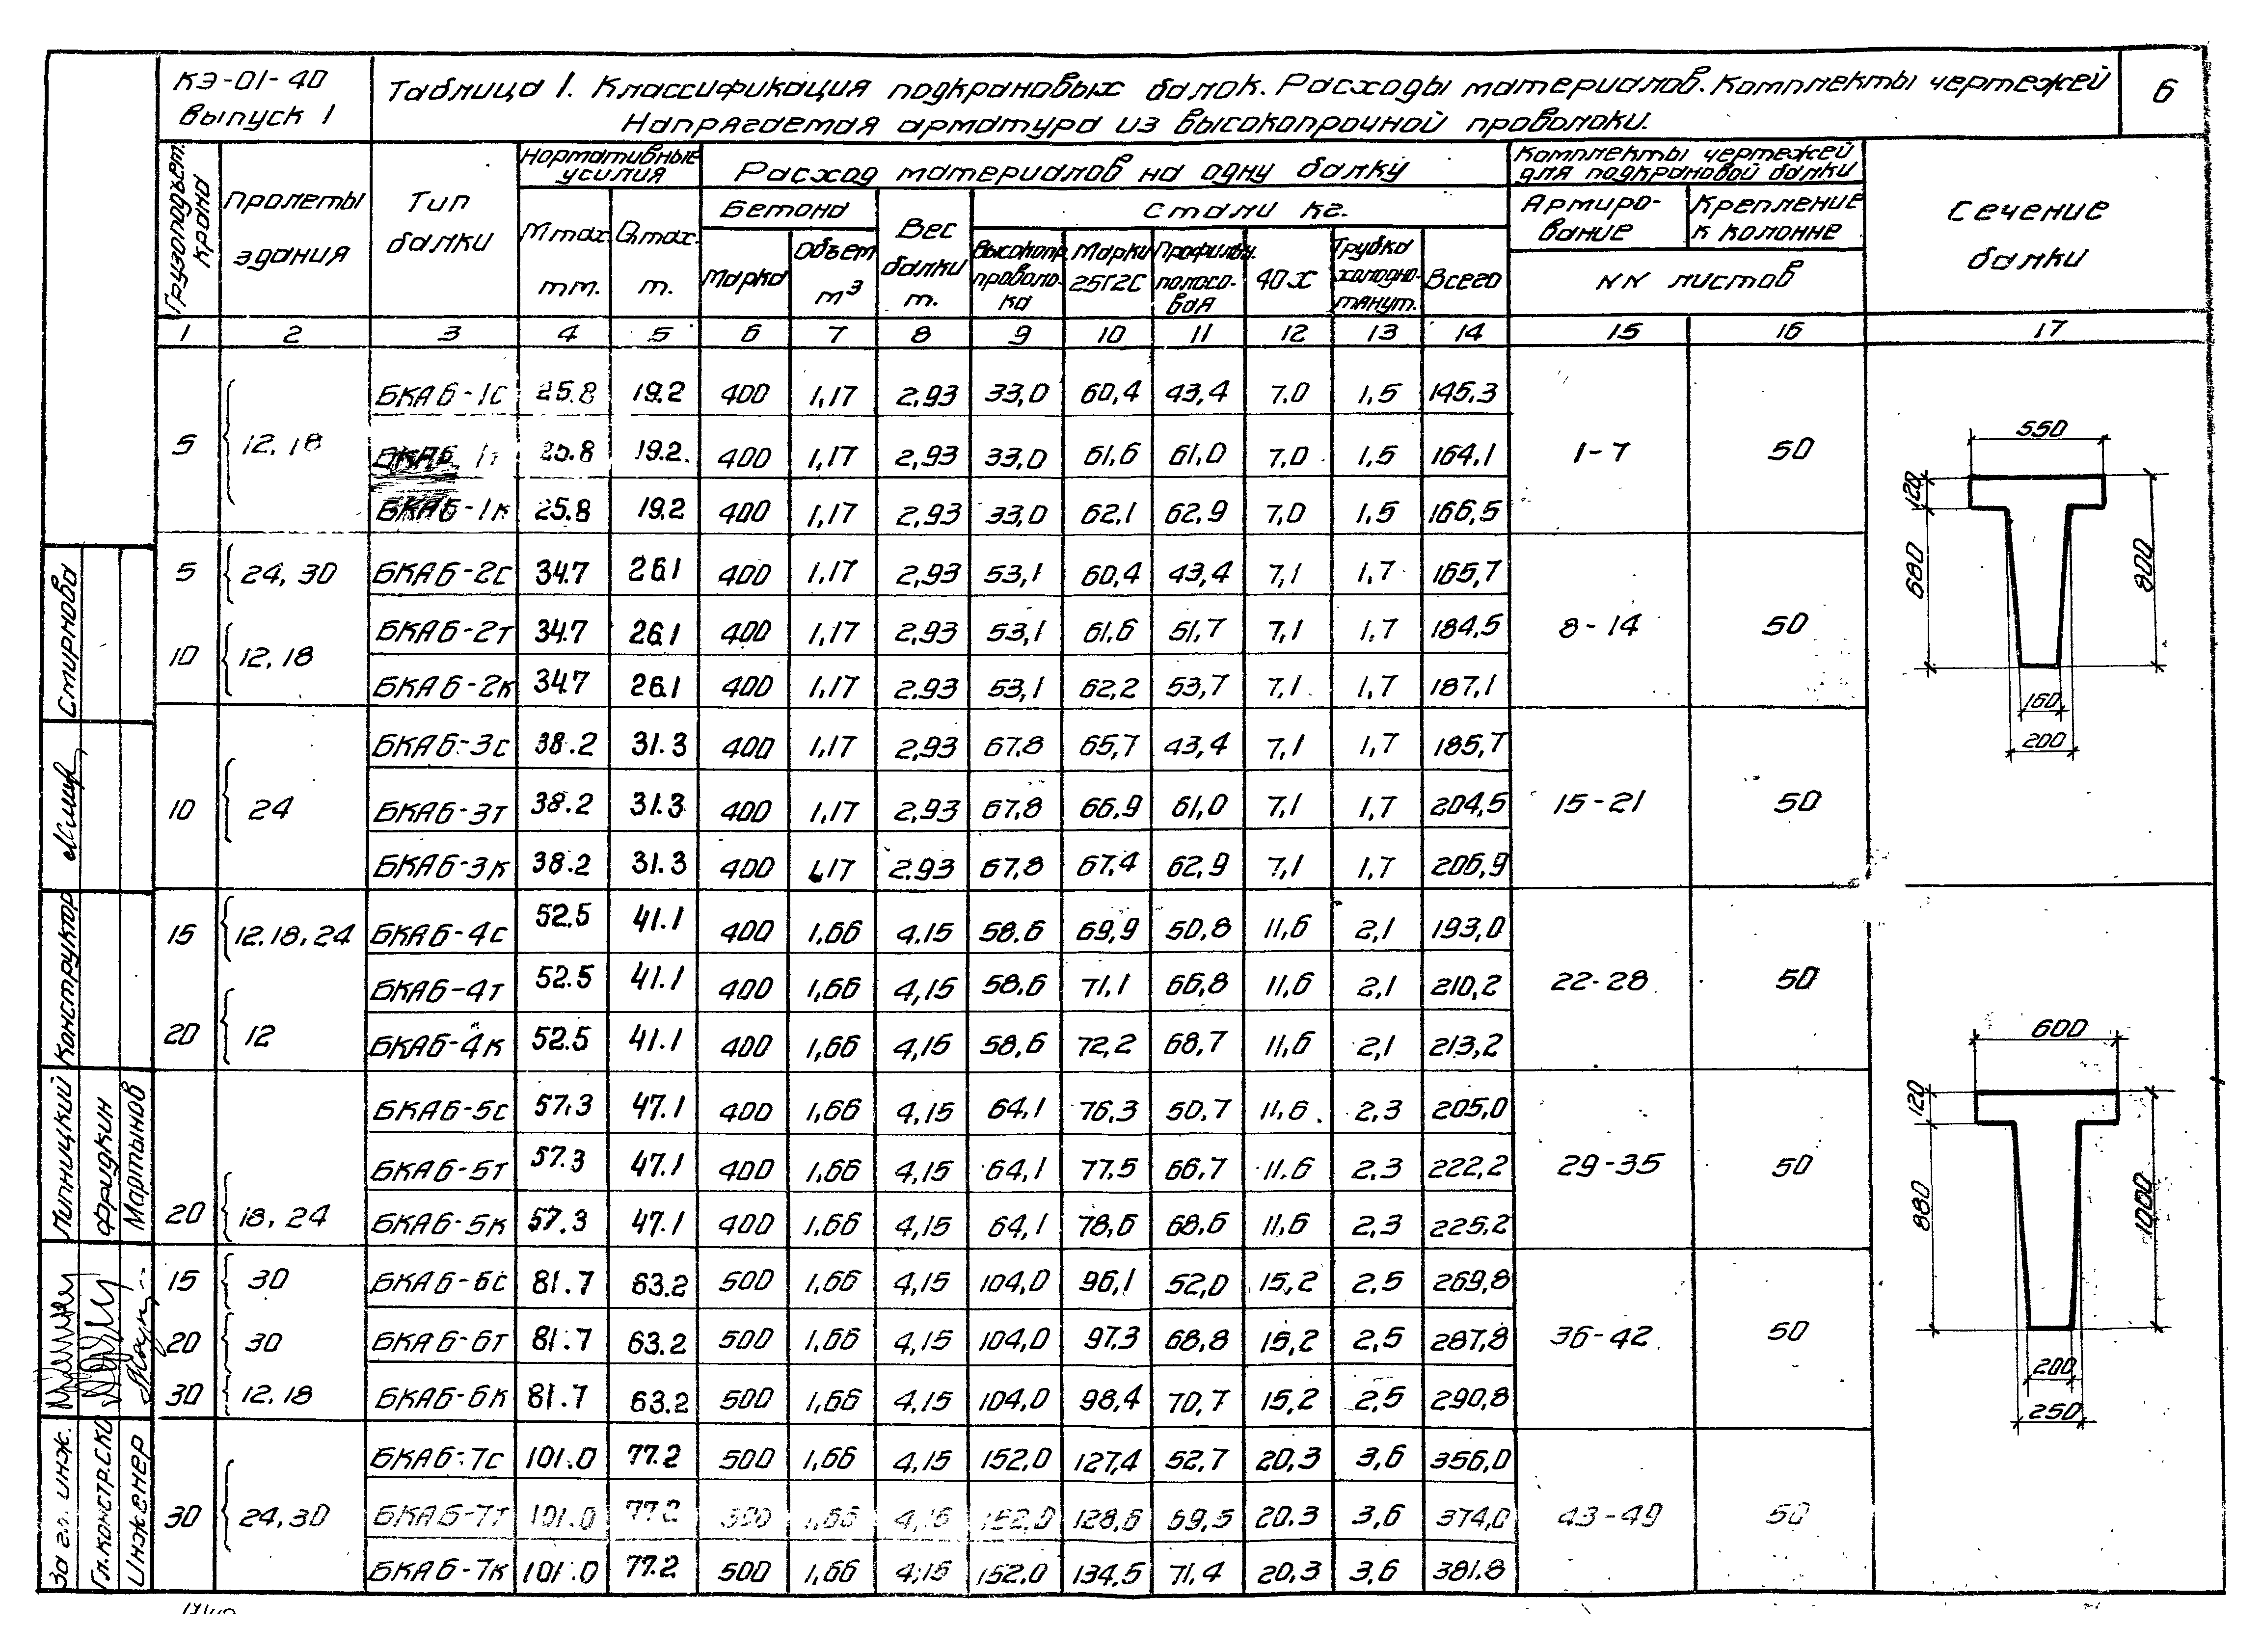 КЭ-01-40
выпуск 1
Таблица 1. Классификация подкрановых балок. Расходы материалов. Комплекты чертежей
Напрягаемая арматура из высокопрочной проволоки.
6
Грузоподъет. крана
Пролеты здания
Тип балки
Нормативные усилия
Mmax. тм.
Qmax. т.
Расход материалов на одну балку
Бетона
Марка
Объем м³
Вес балки т.
Стали кг.
Высокопр. проволока
Марки 25Г2С
Профильн. полосовая
40Х
Трубка холоднотянут.
Всего
Комплекты чертежей для подкрановой балки
Армирование
Крепление к колонне
NN листов
Сечение балки
1 2 3 4 5 6 7 8 9 10 11 12 13 14 15 16 17
БКАБ-1с 25.8 19.2 400 1,17 2,93 33,0 60,4 43,4 7.0 1,5 145.3
5 12,18 БКАБ-1т 25.8 19.2. 400 1,17 2,93 33,0 61.6 61,0 7,0 1,5 164,1 1-7 50
БКАБ-1к 25.8 19.2 400 1,17 2,93 33,0 62,1 62,9 7,0 1,5 166,5
5 24,30 БКАБ-2с 34.7 26.1 400 1,17 2,93 53,1 60,4 43,4 7,1 1,7 165,7
БКАБ-2т 34.7 26.1 400 1,17 2,93 53,1 61,6 51,7 7,1 1,7 184,5 8-14 50
10 12,18
БКАБ-2к 34.7 26.1 400 1,17 2.93 53,1 62,2 53,7 7,1 1,7 187,1
БКАБ-3с 38.2 31.3 400 1,17 2,93 67,8 65,7 43,4 7,1 1,7 185,7
10 24 БКАБ-3т 38.2 31.3 400 1,17 2,93 67,8 66,9 61,0 7,1 1,7 204,5 15-21 50
БКАБ-3к 38.2 31.3 400 1,17 2.93 67,8 67,4 62,9 7,1 1,7 206,9
15 12,18,24 БКАБ-4с 52.5 41.1 400 1,66 4.15 58.6 69,9 50,8 11,6 2,1 193,0
БКАБ-4т 52.5 41.1 400 1,66 4,15 58,6 71,1 66,8 11,6 2,1 210,2 22-28 50
20 12 БКАБ-4к 52.5 41.1 400 1,66 4,15 58,6 72,2 68,7 11,6 2,1 213,2
БКАБ-5с 57.3 47.1 400 1,66 4,15 64,1 76,3 50,7 11.6 2,3 205,0
БКАБ-5т 57.3 47.1 400 1,66 4,15 64,1 77.5 66,7 11.6 2.3 222,2 29-35 50
20 18,24 БКАБ-5к 57.3 47.1 400 1,66 4,15 64,1 78,6 68,6 11,6 2,3 225,2
15 30 БКАБ-6с 81.7 63.2 500 1,66 4,15 104,0 96,1 52,0 15,2 2,5 269,8
20 30 БКАБ-6т 81.7 63.2 500 1,66 4,15 104,0 97.3 68,8 15,2 2,5 287,8 36-42 50
30 12,18 БКАБ-6к 81.7 63.2 500 1,66 4,15 104,0 98,4 70,7 15,2 2,5 290,8
БКАБ-7с 101.0 77.2 500 1,66 4,15 152,0 127,4 52,7 20,3 3,6 356,0
30 24,30 БКАБ-7т 101.0 77.2 500 1,66 4,15 152,0 128,6 69,5 20.3 3,6 374,0 43-49 50
БКАБ-7к 101.0 77.2 500 1,66 4,15 152,0 134,5 71,4 20,3 3,6 381.8
550
120
680
800
160
200
600
120
880
1000
200
250
Смирнова
Конструктор
Липницкий
Фридкин
Мартынов
За гл. инж.
Гл.констр.СКО
Инженер